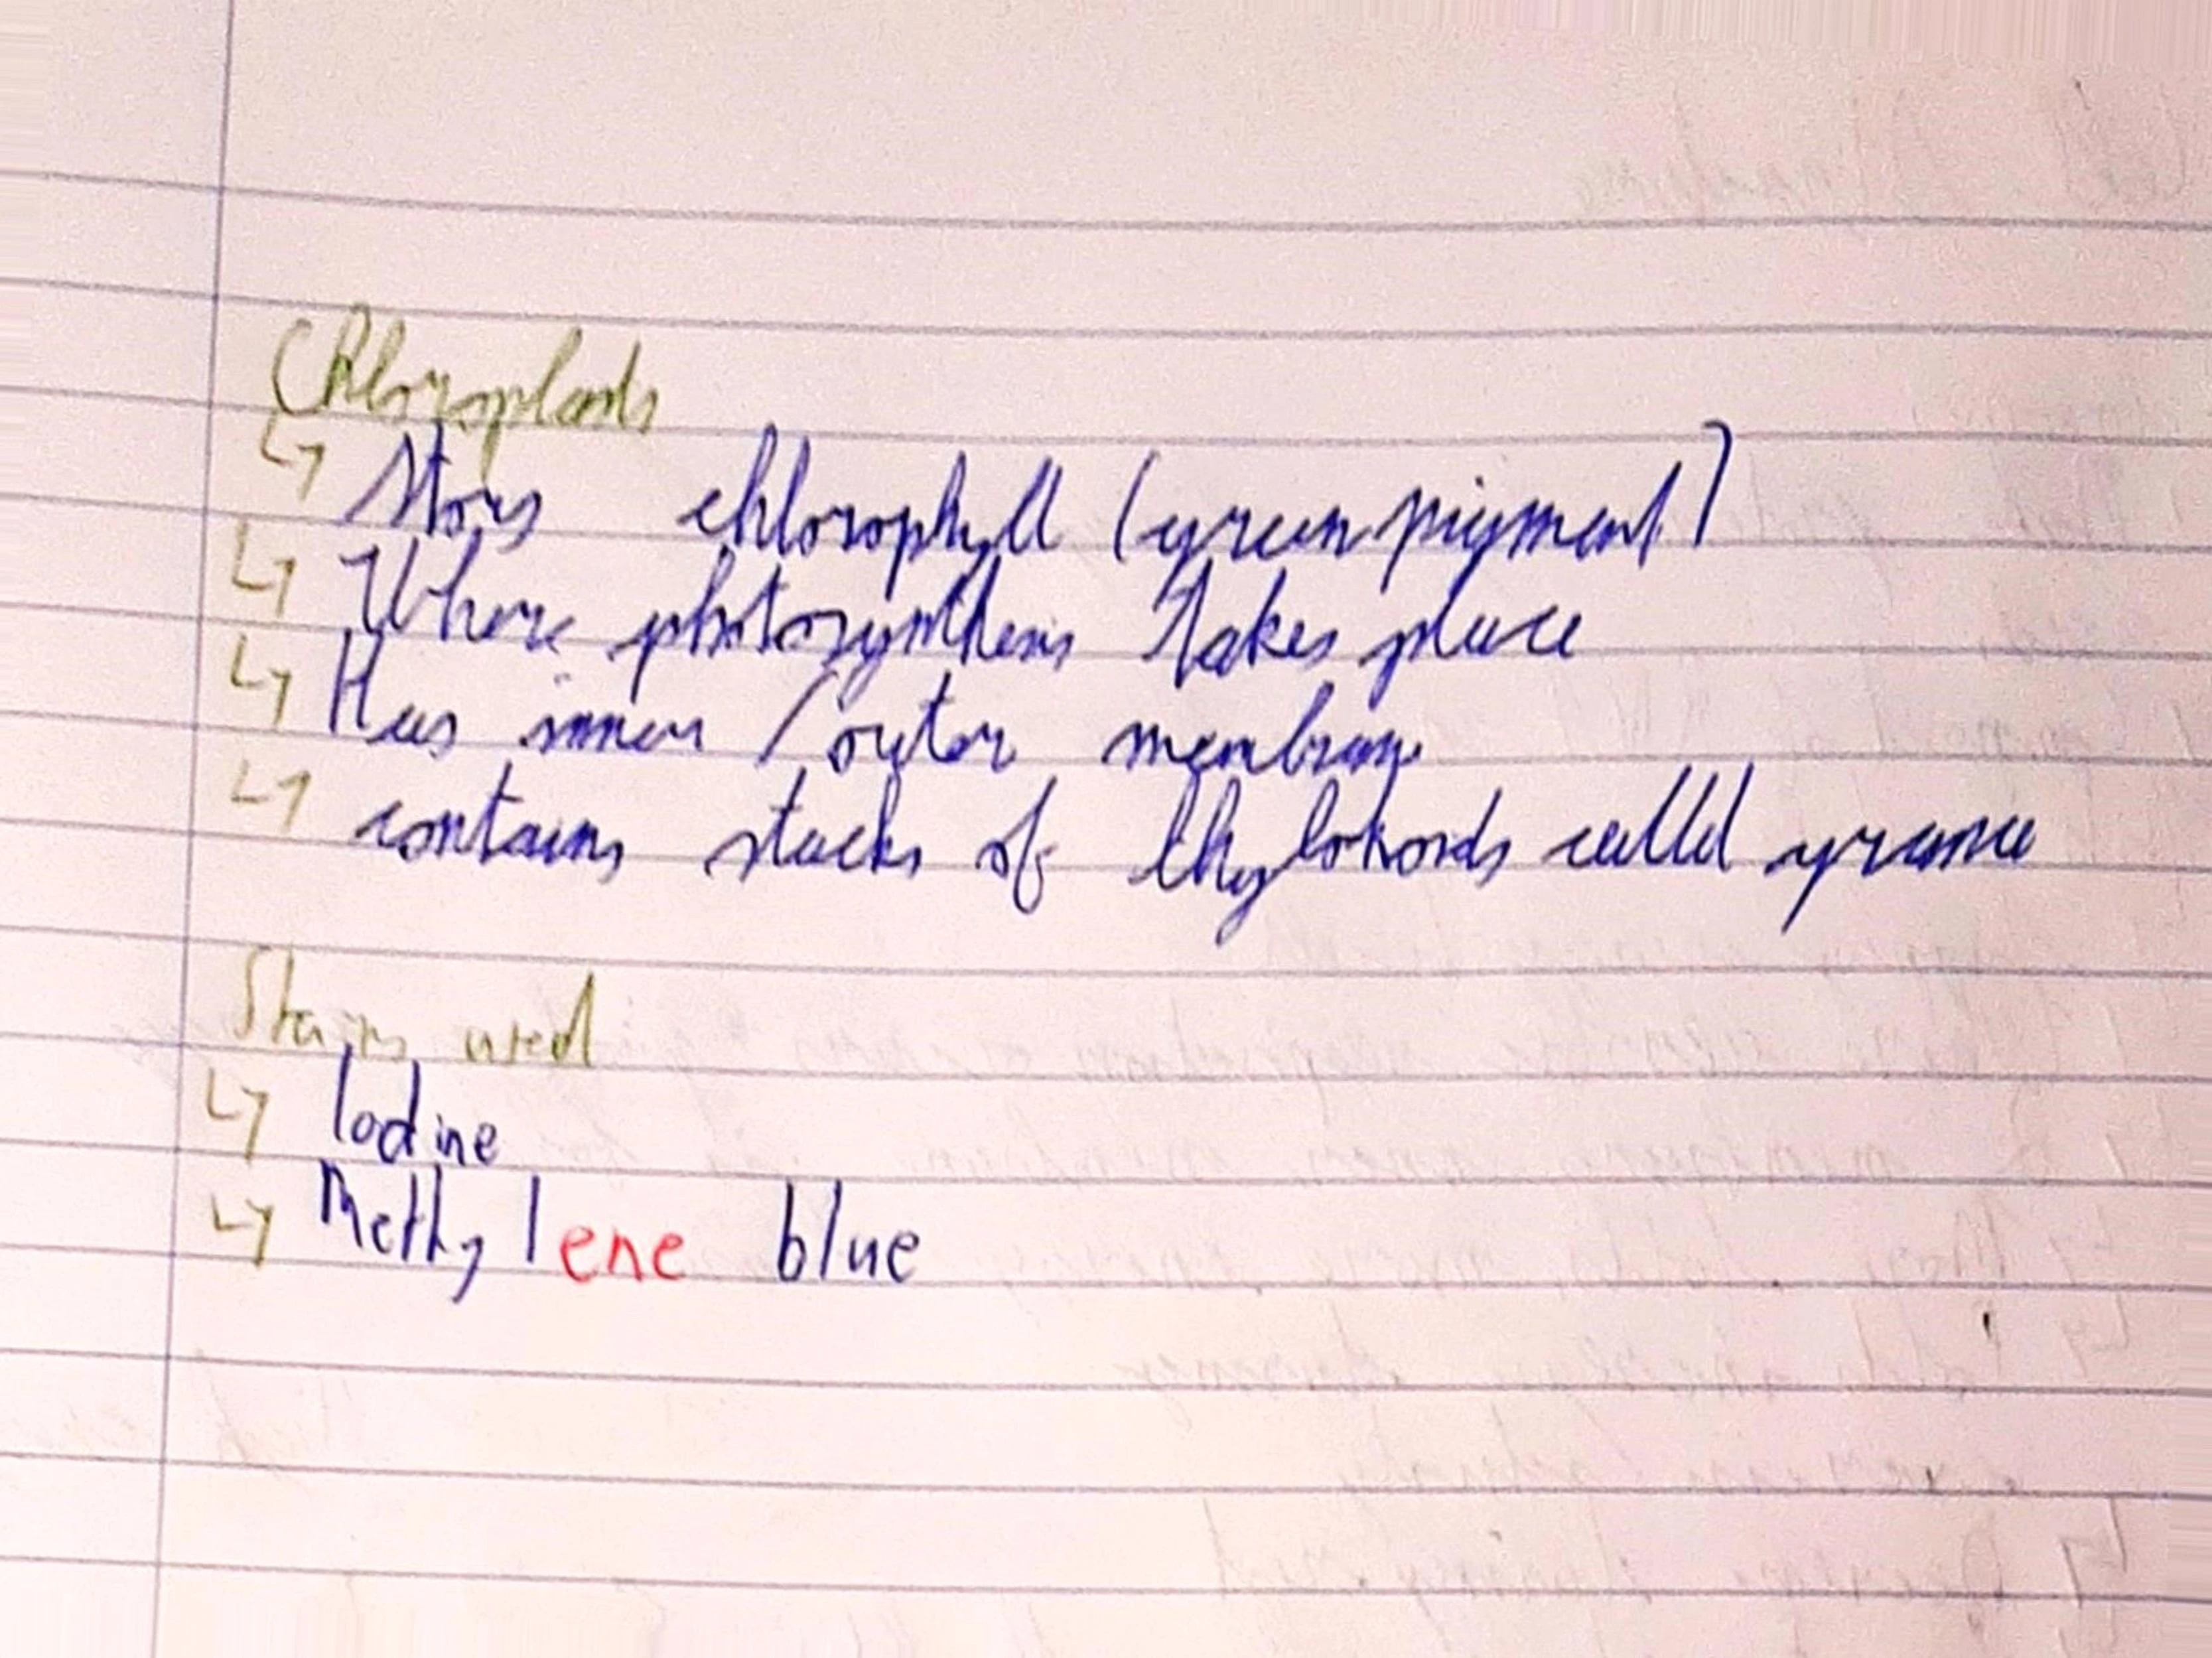 Chloroplasts
↳ Stores chlorophyll (green pigment)
↳ Where photosynthesis takes place
↳ Has inner / outer menbrane
↳ contains stacks of thylokoids called grana
Stains used
↳ Iodine
↳ Methylene blue